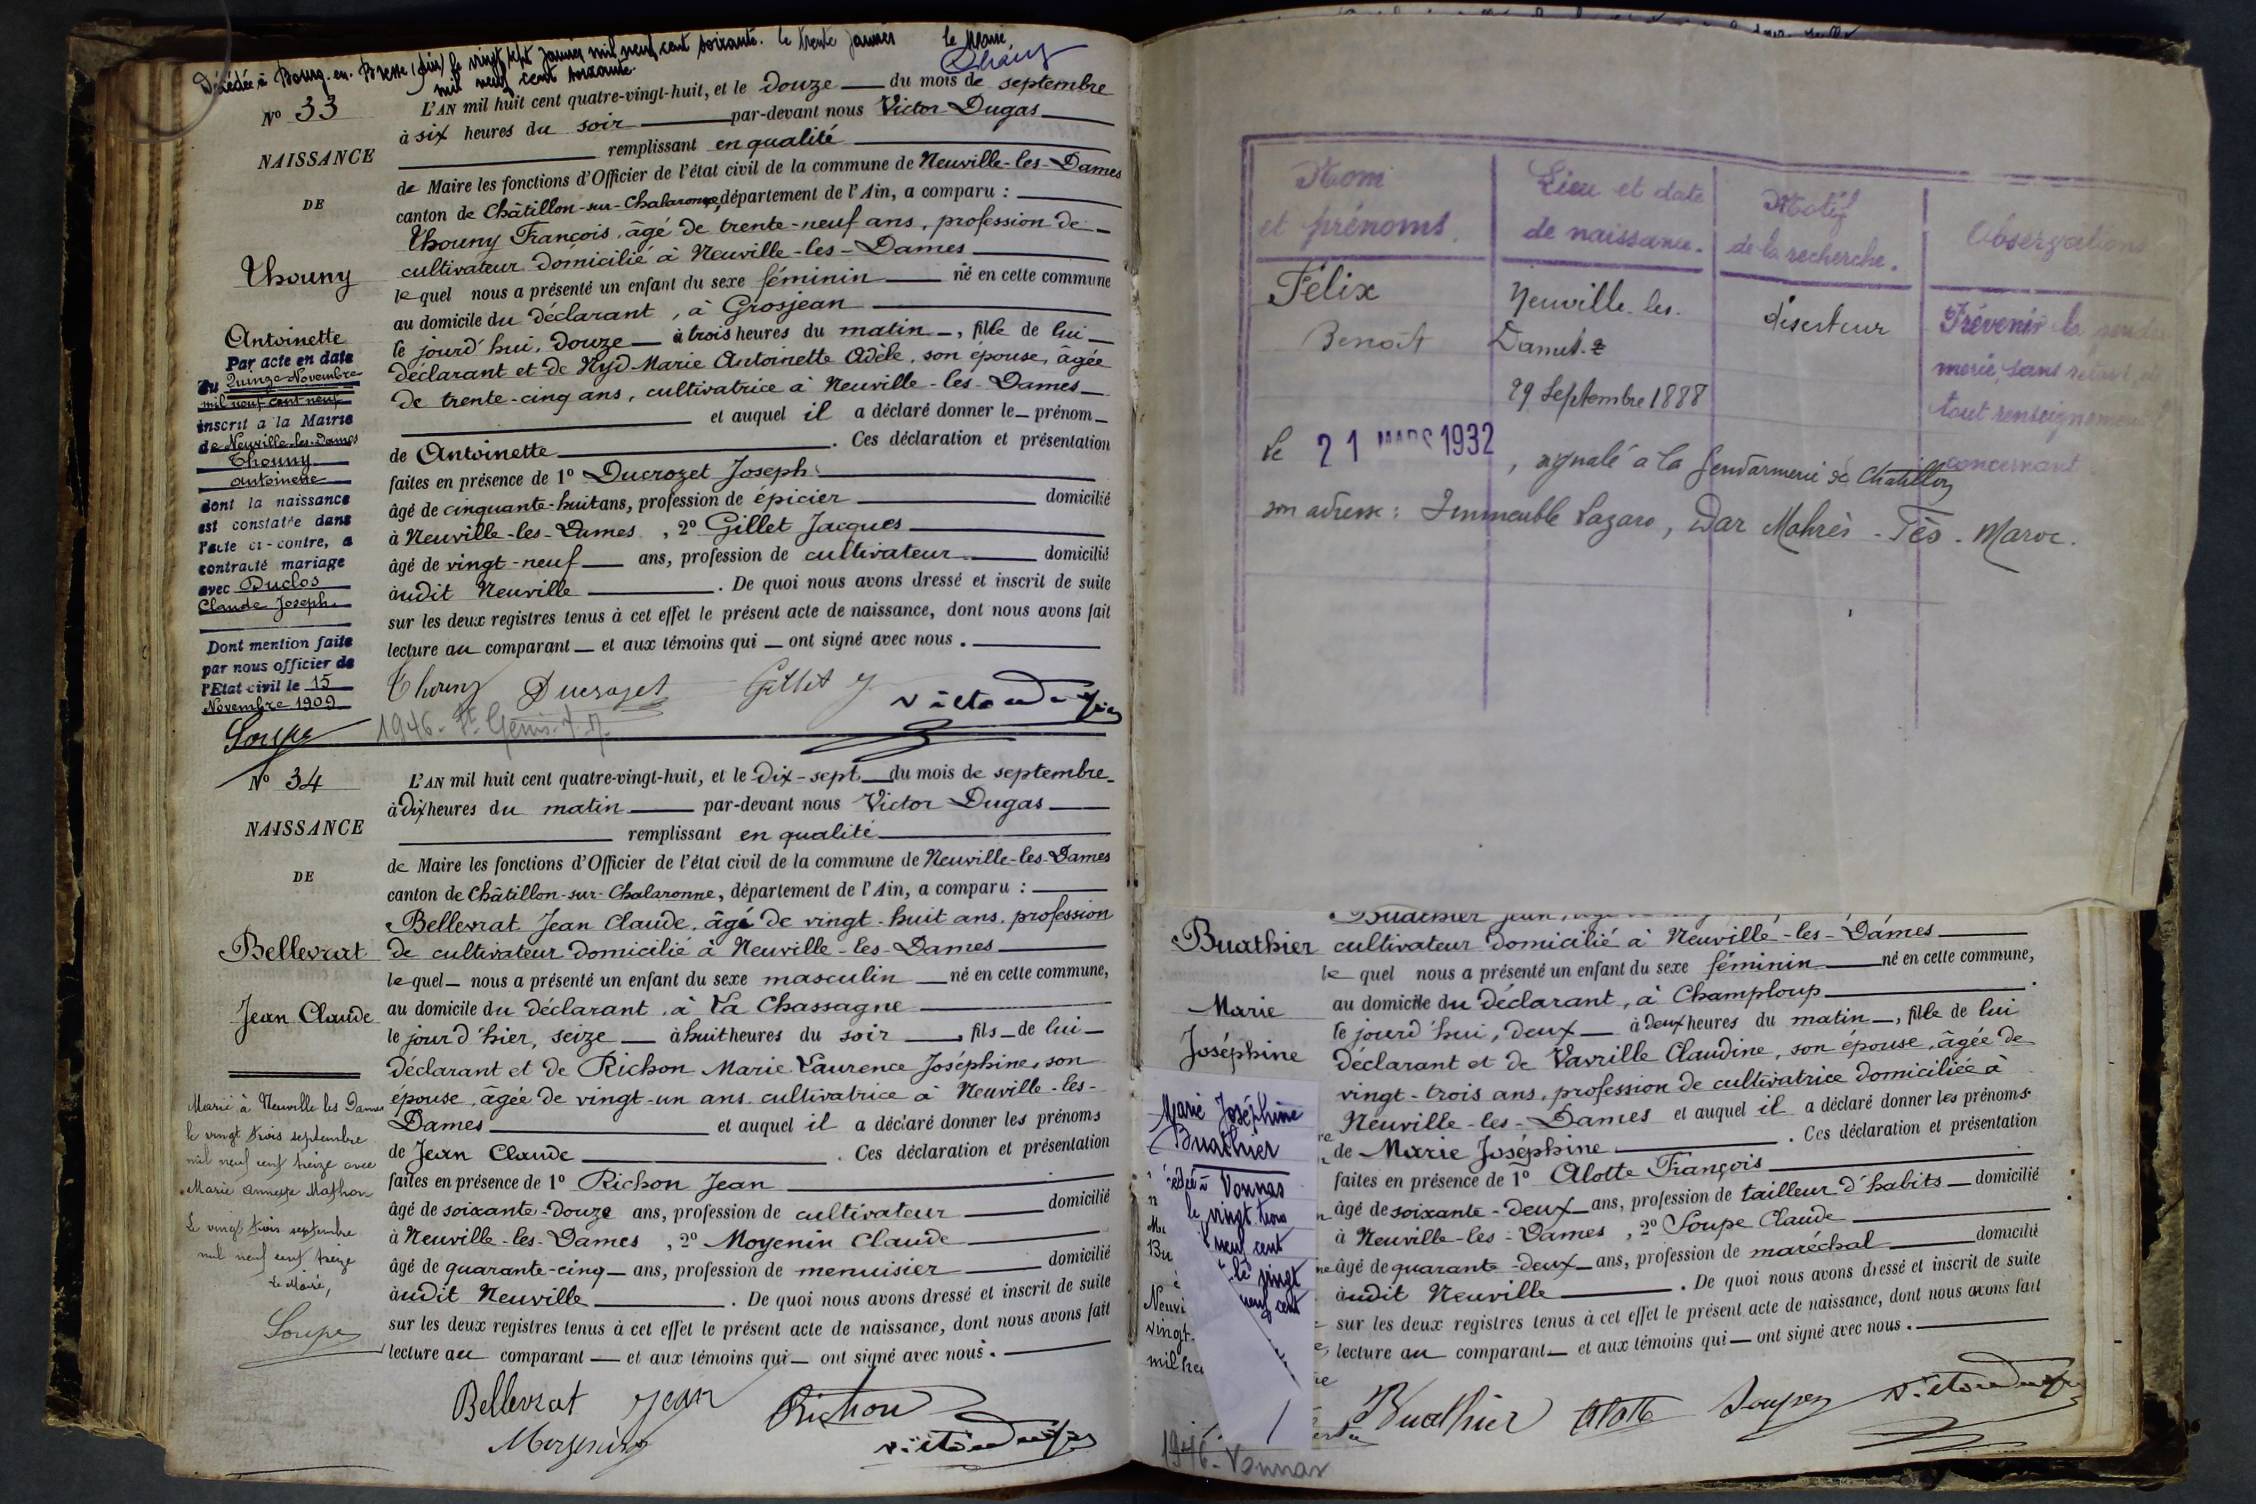 Décédée à Bourg-en-Bresse (Ain) le vingt sept janvier mil neuf cent soixante. Le trente janvier
mil neuf cent soixante.
Le Maire,
N° 33
NAISSANCE
DE
Thouny
Antoinette
Par acte en date
du Quinze Novembre
mil neuf cent neuf
inscrit à la Mairie
de Neuville-les-Dames
Thouny
Antoinette
dont la naissance
est constatée dans
l'acte ci-contre, a
contracté mariage
avec Duclos
Claude Joseph
Dont mention faite
par nous officier de
l'Etat civil le 15
Novembre 1909
Soupe
L'AN mil huit cent quatre-vingt-huit, et le douze du mois de septembre
à six heures du soir par-devant nous Victor Dugas
remplissant en qualité
de Maire les fonctions d'Officier de l'état civil de la commune de Neuville-les-Dames
canton de Châtillon-sur-Chalaronne, département de l'Ain, a comparu :
Thouny François, âgé de trente-neuf ans, profession de
cultivateur domicilié à Neuville-les-Dames
lequel nous a présenté un enfant du sexe féminin né en cette commune
au domicile du déclarant, à Grosjean
le jourd'hui, douze à trois heures du matin, fille de lui
déclarant et de Nyd Marie Antoinette Adèle, son épouse, âgée
de trente-cinq ans, cultivatrice à Neuville-les-Dames
et auquel il a déclaré donner le prénom
de Antoinette. Ces déclaration et présentation
faites en présence de 1° Ducrozet Joseph
âgé de cinquante-huit ans, profession de épicier domicilié
à Neuville-les-Dames, 2° Gillet Jacques
âgé de vingt-neuf ans, profession de cultivateur domicilié
audit Neuville. De quoi nous avons dressé et inscrit de suite
sur les deux registres tenus à cet effet le présent acte de naissance, dont nous avons fait
lecture au comparant et aux témoins qui ont signé avec nous.
Thouny Ducrozet Gillet J Victor Dugas
1946 - St Genis
N° 34
NAISSANCE
DE
Bellevrat
Jean Claude
Marié à Neuville les Dames
le vingt trois septembre
mil neuf cent treize avec
Marie Mathon
Le vingt trois septembre
mil neuf cent treize
Le Maire,
Soupe
L'AN mil huit cent quatre-vingt-huit, et le dix-sept du mois de septembre
à dix heures du matin par-devant nous Victor Dugas
remplissant en qualité
de Maire les fonctions d'Officier de l'état civil de la commune de Neuville-les-Dames
canton de Châtillon-sur-Chalaronne, département de l'Ain, a comparu :
Bellevrat Jean Claude, âgé de vingt-huit ans, profession
de cultivateur domicilié à Neuville-les-Dames
lequel nous a présenté un enfant du sexe masculin né en cette commune,
au domicile du déclarant, à La Chassagne
le jour d'hier, seize à huit heures du soir, fils de lui
déclarant et de Richon Marie Laurence Joséphine, son
épouse, âgée de vingt-un ans, cultivatrice à Neuville-les-
Dames et auquel il a déclaré donner les prénoms
de Jean Claude. Ces déclaration et présentation
faites en présence de 1° Richon Jean
âgé de soixante-douze ans, profession de cultivateur domicilié
à Neuville-les-Dames, 2° Moyenin Claude
âgé de quarante-cinq ans, profession de menuisier domicilié
audit Neuville. De quoi nous avons dressé et inscrit de suite
sur les deux registres tenus à cet effet le présent acte de naissance, dont nous avons fait
lecture au comparant et aux témoins qui ont signé avec nous.
Bellevrat Jean Richon
Moyenin Victor Dugas
Nom
et prénoms.
Lieu et date
de naissance.
Motif
de la recherche.
Observations
Félix
Benoît
Neuville-les-
Dames
29 Septembre 1888
déserteur
Prévenir la gendar
merie, sans retard, de
tout renseignement
concernant
Le 21 MARS 1932, signalé à la Gendarmerie de Chatillon
son adresse : Immeuble Lazaro, Dar Mahrès - Fès - Maroc.
Buathier
Marie
Joséphine
Buathier Jean,
cultivateur domicilié à Neuville-les-Dames
lequel nous a présenté un enfant du sexe féminin né en cette commune,
au domicile du déclarant, à Champloup
le jourd'hui, deux à deux heures du matin, fille de lui
déclarant et de Vavrille Claudine, son épouse, âgée de
vingt-trois ans, profession de cultivatrice domiciliée à
Neuville-les-Dames et auquel il a déclaré donner les prénoms
de Marie Joséphine. Ces déclaration et présentation
faites en présence de 1° Alotte François
âgé de soixante-deux ans, profession de tailleur d'habits domicilié
à Neuville-les-Dames, 2° Soupe Claude
âgé de quarante-deux ans, profession de maréchal domicilié
audit Neuville. De quoi nous avons dressé et inscrit de suite
sur les deux registres tenus à cet effet le présent acte de naissance, dont nous avons fait
lecture au comparant et aux témoins qui ont signé avec nous.
Buathier Alotte Soupe Victor Dugas
Marie Joséphine
Buathier
Vonnas
le vingt trois
neuf cent
le vingt
neuf cent
Neuvi
vingt
mil
1946 - Vonnas